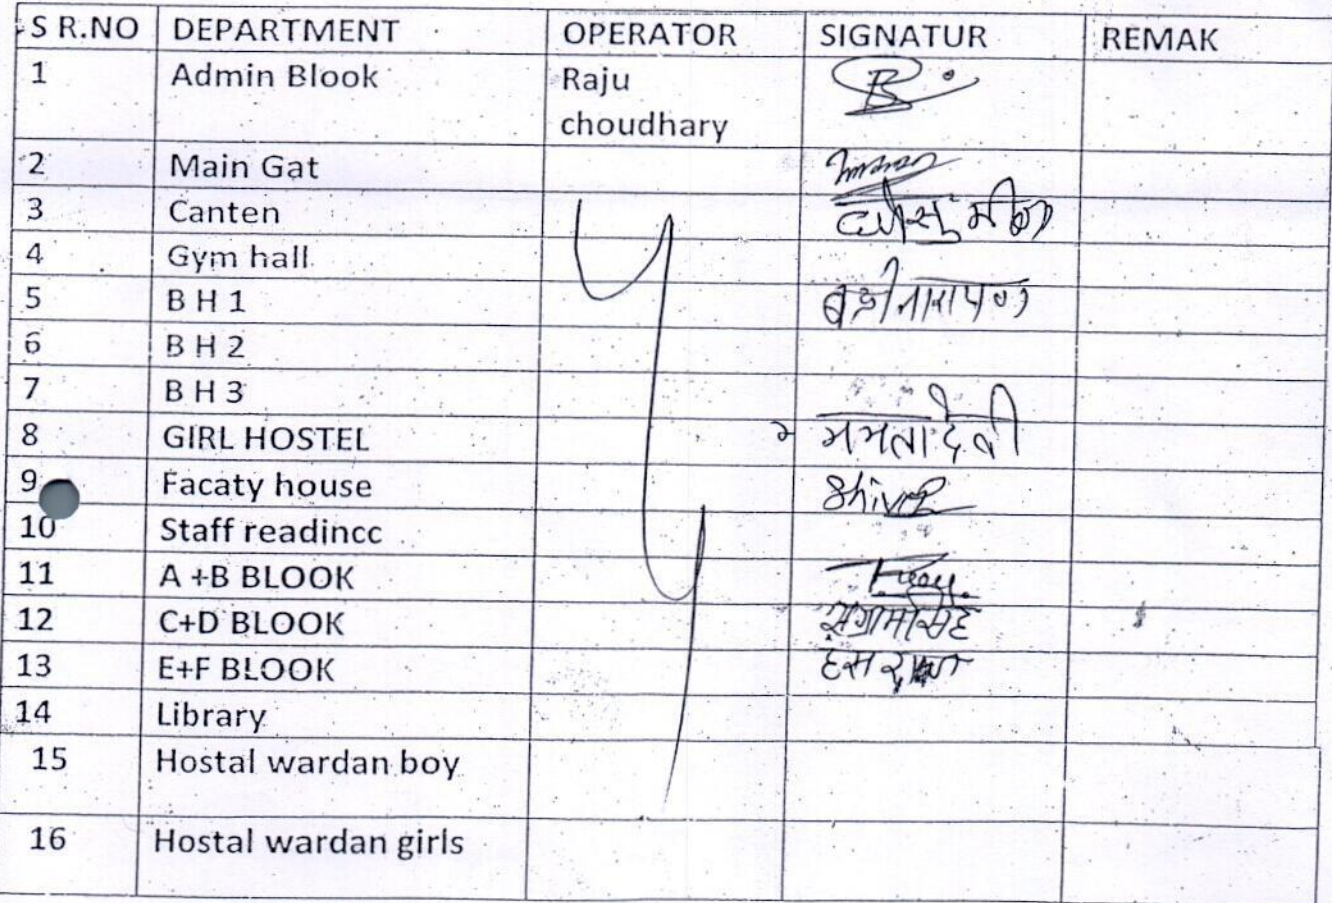 S R.NO DEPARTMENT OPERATOR SIGNATUR REMAK
1 Admin Blook Raju
choudhary
2 Main Gat
3 Canten
4 Gym hall
5 B H 1 बद्रीनारायण
6 B H 2
7 B H 3
8 GIRL HOSTEL ममता देवी
9 Facaty house
10 Staff readincc
11 A +B BLOOK
12 C+D BLOOK
13 E+F BLOOK
14 Library
15 Hostal wardan boy
16 Hostal wardan girls